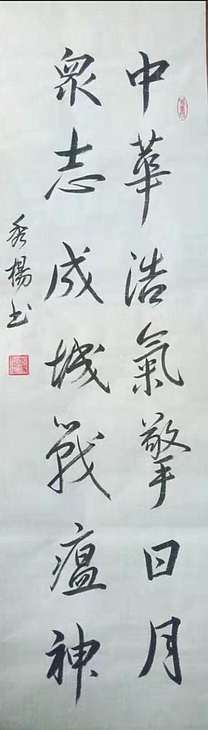 中華浩氣擎日月
眾志成城戰瘟神
秀楊书